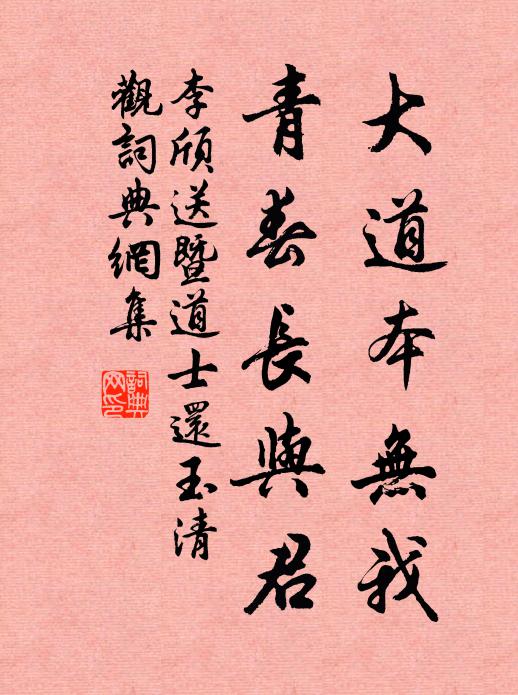 大道本無我
青春長與君
李頎送暨道士還玉清
觀詞典網集
詞典
网印